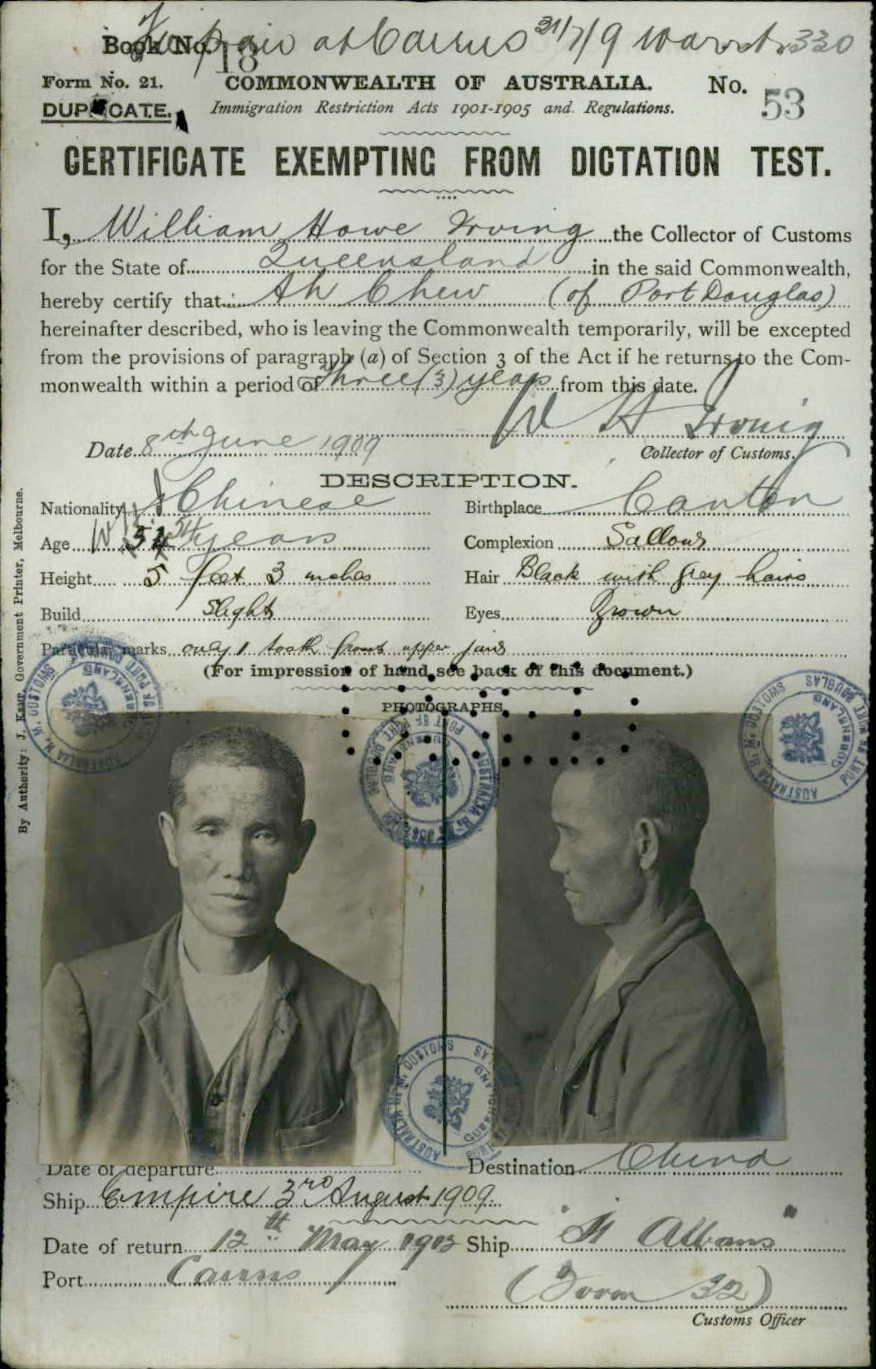 Book No. 18 at Cairns 21/7/9 330
Form No. 21. COMMONWEALTH OF AUSTRALIA. No. 53
DUPLICATE. Immigration Restriction Acts 1901-1905 and Regulations.
CERTIFICATE EXEMPTING FROM DICTATION TEST.
I, William Howe Irving the Collector of Customs
for the State of Queensland in the said Commonwealth,
hereby certify that Ah Chew (of Port Douglas)
hereinafter described, who is leaving the Commonwealth temporarily, will be excepted
from the provisions of paragraph (a) of Section 3 of the Act if he returns to the Com-
monwealth within a period of Three (3) years from this date.
W H Irving
Date 8th June 1909 Collector of Customs.
DESCRIPTION.
Nationality Chinese Birthplace Canton
Age 54 years Complexion Sallow
Height 5 feet 3 inches Hair Black with grey hairs
Build Slight Eyes Brown
Particular marks only 1 tooth front upper jaw
(For impression of hand see back of this document.)
PHOTOGRAPHS
By Authority: J. Kemp, Government Printer, Melbourne.
AUSTRALIA H. M. CUSTOMS PORT DOUGLAS QUEENSLAND
AUSTRALIA H. M. CUSTOMS PORT OF PORT DOUGLAS QUEENSLAND
AUSTRALIA H. M. CUSTOMS PORT DOUGLAS QUEENSLAND
AUSTRALIA H. M. CUSTOMS QUEENSLAND
Date of departure Destination China
Ship Empire 3rd August 1909.
Date of return 12th May 1912 Ship "St Albans"
Port Cairns (Form 32)
Customs Officer